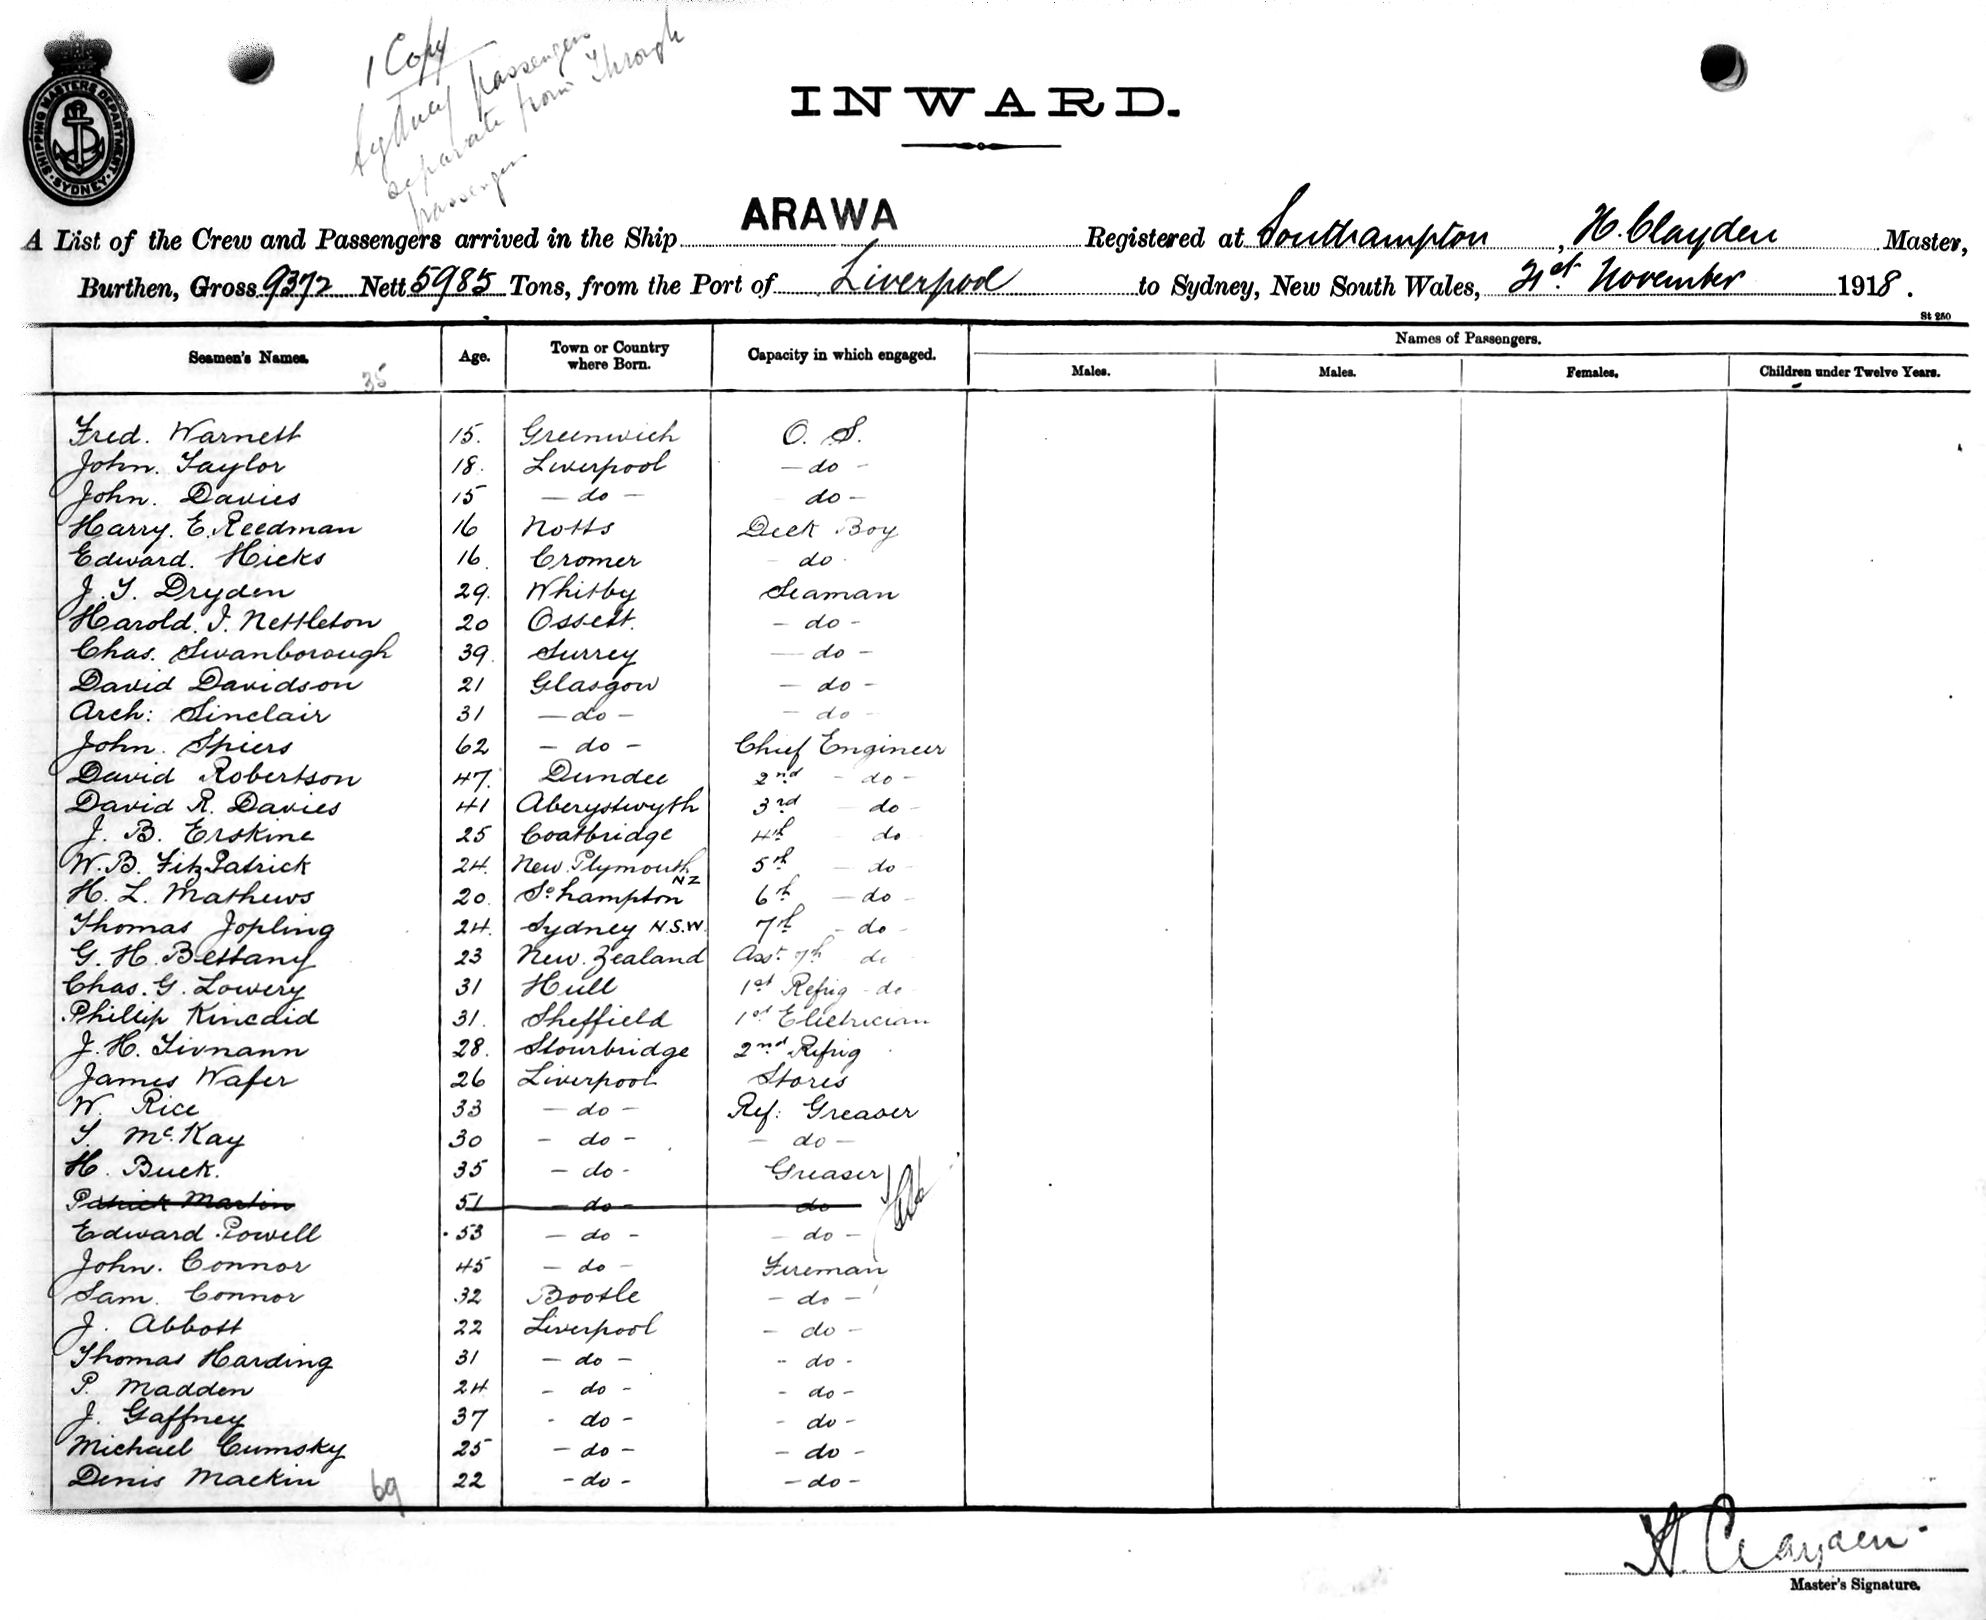 1 Copy
Sydney passengers
separate from Through
passengers
SHIPPING MASTERS DEPARTMENT SYDNEY
INWARD.
A List of the Crew and Passengers arrived in the Ship ARAWA Registered at Southampton, H. Clayden Master,
Burthen, Gross 9372 Nett 5985 Tons, from the Port of Liverpool to Sydney, New South Wales, 21st November 1918.
St 250
Seamen's Names. Age. Town or Country where Born. Capacity in which engaged. Names of Passengers.
35 Males. Males. Females. Children under Twelve Years.
Fred. Warnett 15. Greenwich O. S.
John. Taylor 18. Liverpool - do -
John. Davies 15 - do - do -
Harry. E. Reedman 16 Notts Deck Boy
Edward. Hicks 16. Cromer - do -
J. T. Dryden 29. Whitby Seaman
Harold. I. Nettleton 20 Ossett. - do -
Chas. Swanborough 39. Surrey - do -
David Davidson 21 Glasgow - do -
Arch: Sinclair 31 - do - - do -
John. Spiers 62 - do - Chief Engineer
David Robertson 47. Dundee 2nd - do -
David R. Davies 41 Aberystwyth 3rd - do -
J. B. Erskine 25 Coatbridge 4th do
W. B. FitzPatrick 24. New Plymouth NZ 5th - do -
H. L. Mathews 20. So hampton 6th - do -
Thomas Jopling 24. Sydney N.S.W. 7th - do -
G. H. Bettany 23 New. Zealand Asst 7th do
Chas. G. Lowery 31 Hull 1st Refrig - do -
Phillip Kincaid 31. Sheffield 1st Electrician
J. H. Tivnann 28. Stourbridge 2nd Refrig
James Wafer 26 Liverpool Stores
W. Rice 33 - do - Ref: Greaser
T. McKay 30 - do - - do -
H. Buck. 35 - do - Greaser
Patrick Martin 51 - do - do
Edward. Powell 53 - do - - do -
John. Connor 45 - do - Fireman
Sam. Connor 32 Bootle - do -
J. Abbott 22 Liverpool - do -
Thomas Harding 31 - do - - do -
P. Madden 24 - do - - do -
J. Gaffney 37 - do - - do -
Michael Cumsky 25 - do - - do -
Denis Mackin 22 - do - - do -
69
H. Clayden
Master's Signature.